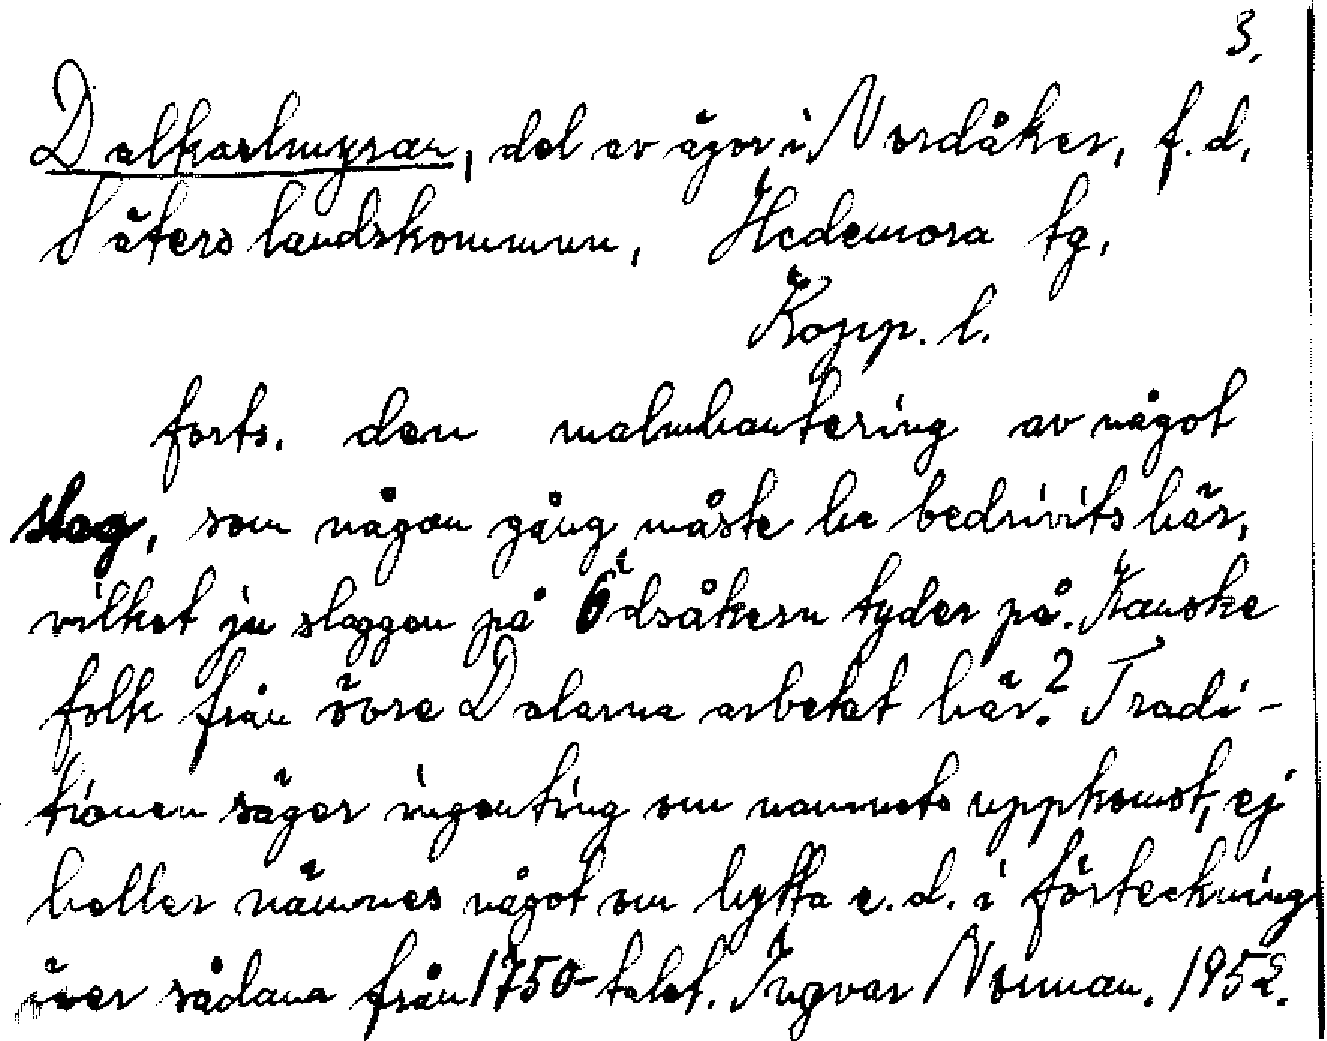 3.
Dalkarlmyrar, del av ägor i Nordåker, f.d.
Säters landskommun, Hedemora tg,
Kopp. l.
forts. den malmhantering av något
slag, som någon gång måste ha bedrivits här,
vilket ju slaggen på Ödsåkern tyder på. Kanske
folk från övre Dalarna arbetat här? Tradi-
tionen säger ingenting om namnets uppkomst, ej
heller nämnes något om hytta e.d. i förteckning
över sådana från 1750-talet. Ingvar Norman. 1952.